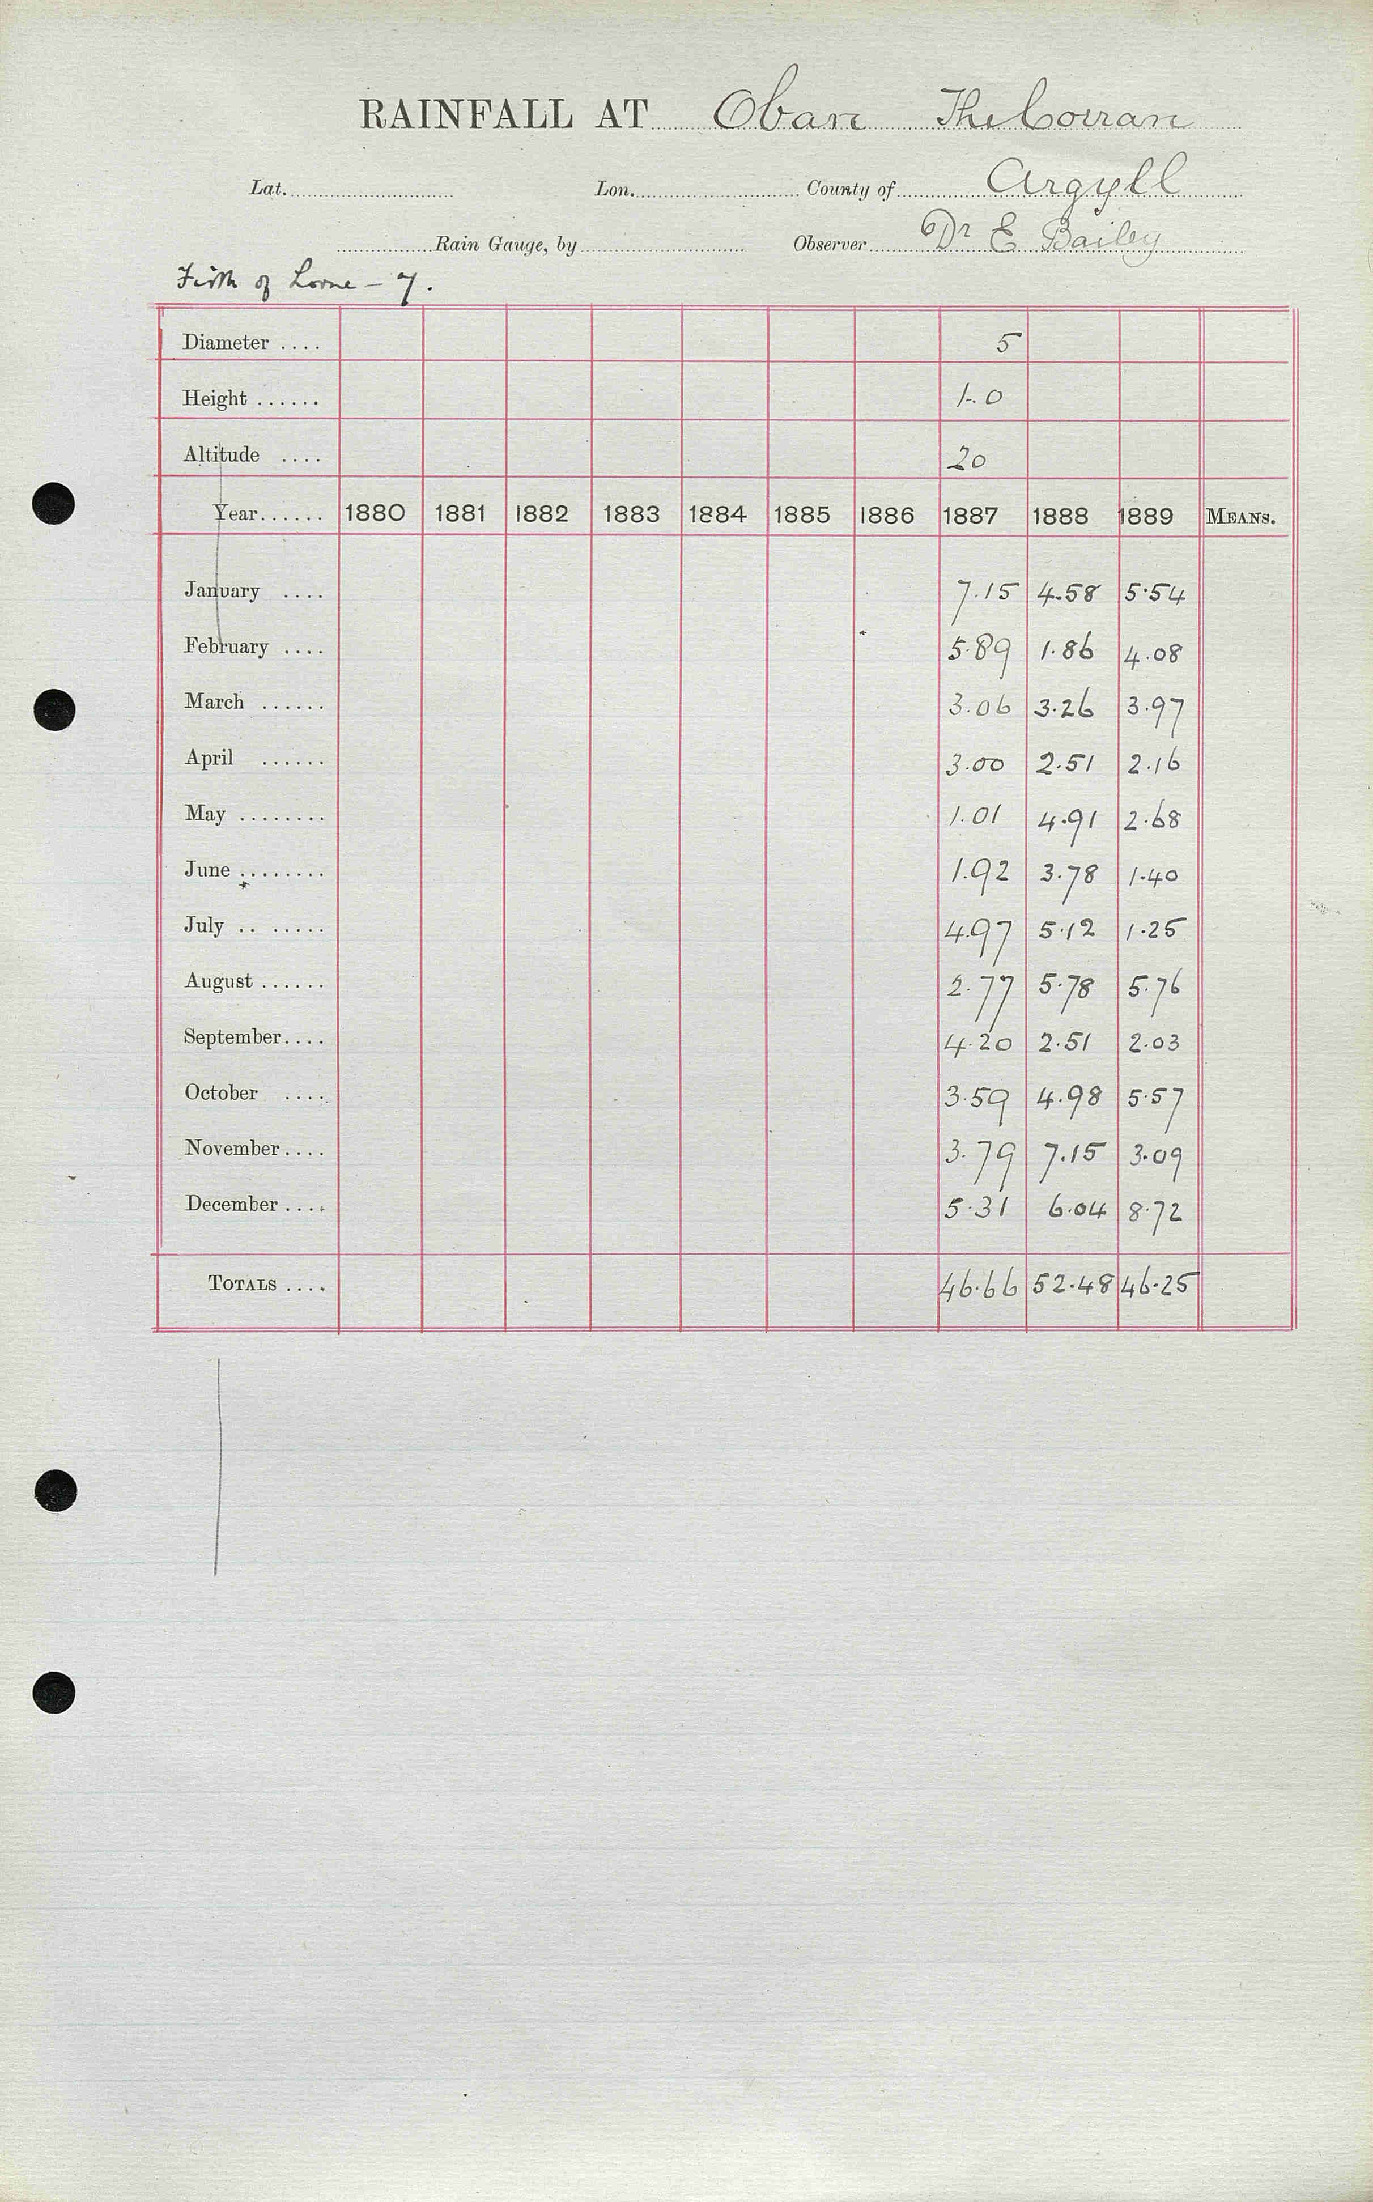 RAINFALL AT Oban The Corran
Lat. Lon. County of Argyll
Rain Gauge, by Observer Dr E Bailey
Firth of Lorne - 7.
Diameter .... 5
Height ...... 1.0
Altitude .... 20
Year...... 1880 1881 1882 1883 1884 1885 1886 1887 1888 1889 MEANS.
January .... 7.15 4.58 5.54
February .... 5.89 1.86 4.08
March ...... 3.06 3.26 3.97
April ...... 3.00 2.51 2.16
May ........ 1.01 4.91 2.68
June ........ 1.92 3.78 1.40
July .. ..... 4.97 5.12 1.25
August ...... 2.77 5.78 5.76
September.... 4.20 2.51 2.03
October .... 3.59 4.98 5.57
November.... 3.79 7.15 3.09
December .... 5.31 6.04 8.72
TOTALS .... 46.66 52.48 46.25